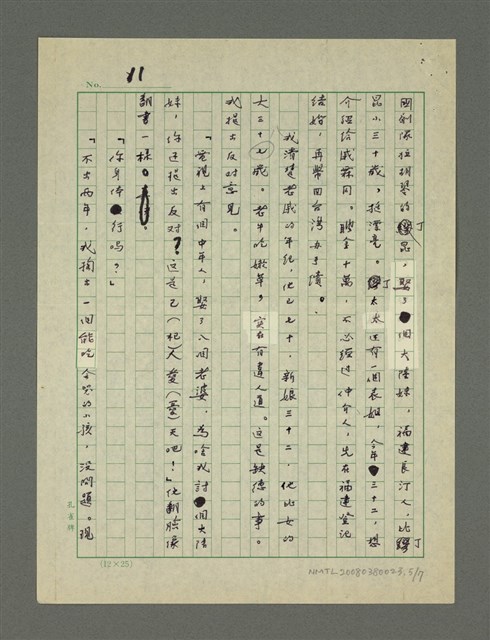 No. 11
國劇隊拉胡琴的丁昆，娶了個大陸妹，福建長汀人，比丁
昆小三十歲，挺漂亮。丁太太還有一個表姐，今年三十二，想
介紹給戚霖同。聘金十萬，不必經過仲介人，先在福建登記
結婚，再帶回台灣辦手續。
我清楚老戚的年紀，他已七十，新娘三十二，他比女的
大三十七歲。老牛吃嫩草，實在有違人道。這是缺德的事。
我提出反對意見。
「電視上有個中年人，娶了八個老婆，為啥我討個大陸
妹，你還提出反對？這是己（杞）人愛（憂）天吧！」他翻臉像
翻書一樣。
「你身体行嗎？」
「不出兩年，我掏出一個能吃會哭的小孩，沒問題。現
孔雀牌
(12×25)
NMTL20080380023.5/7